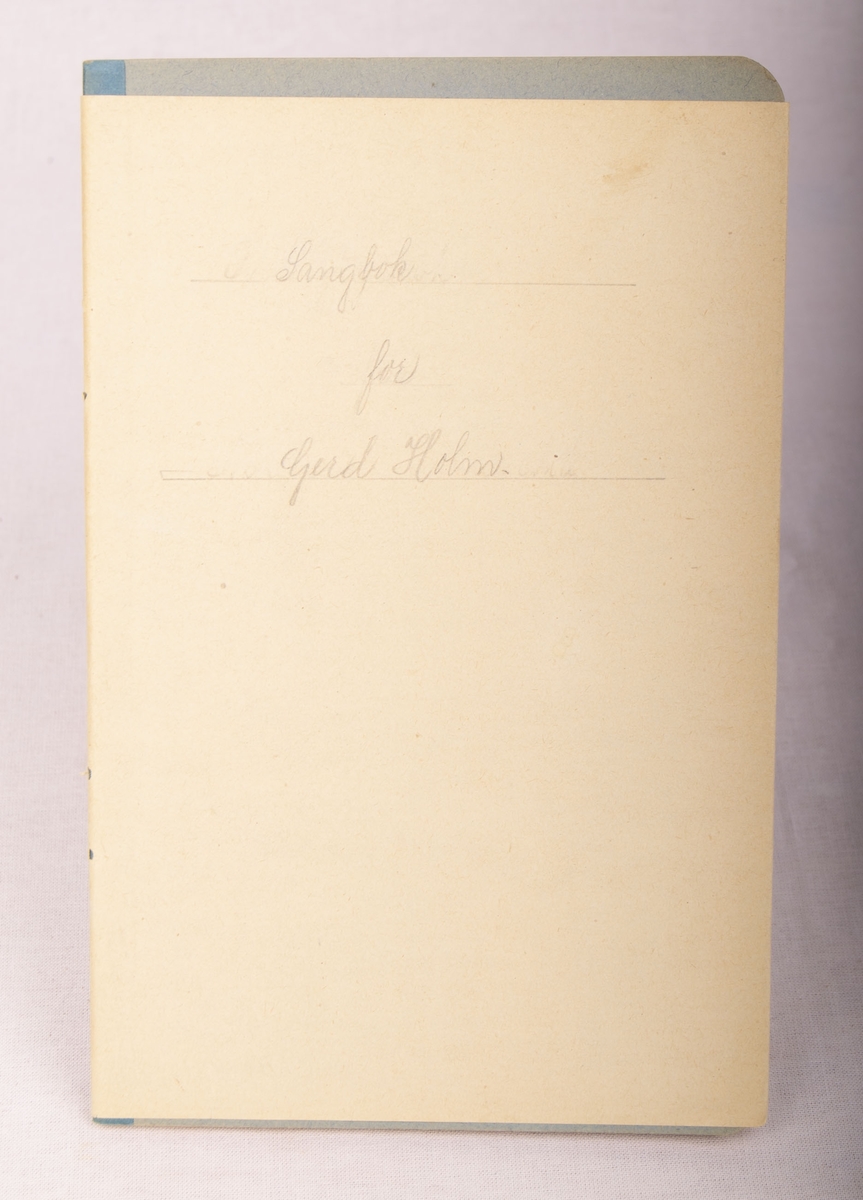 Sangbok
for
Gerd Holm.